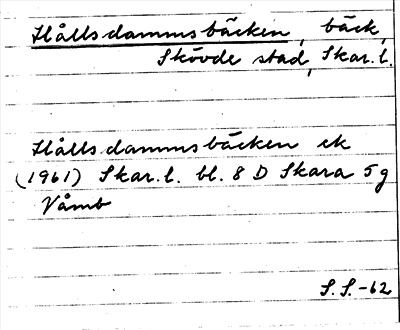 Hålls dammsbäcken, bäck,
Skövde stad, Skar. l.
Hålls dammsbäcken ek
(1961) Skar. l. bl. 8 D Skara 5 g
Våmb
S. S. -62